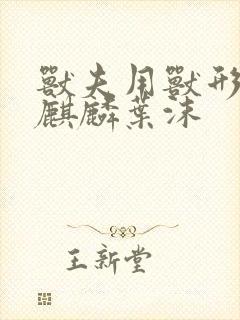 獸夫用獸形
麒麟葉沫
王新堂